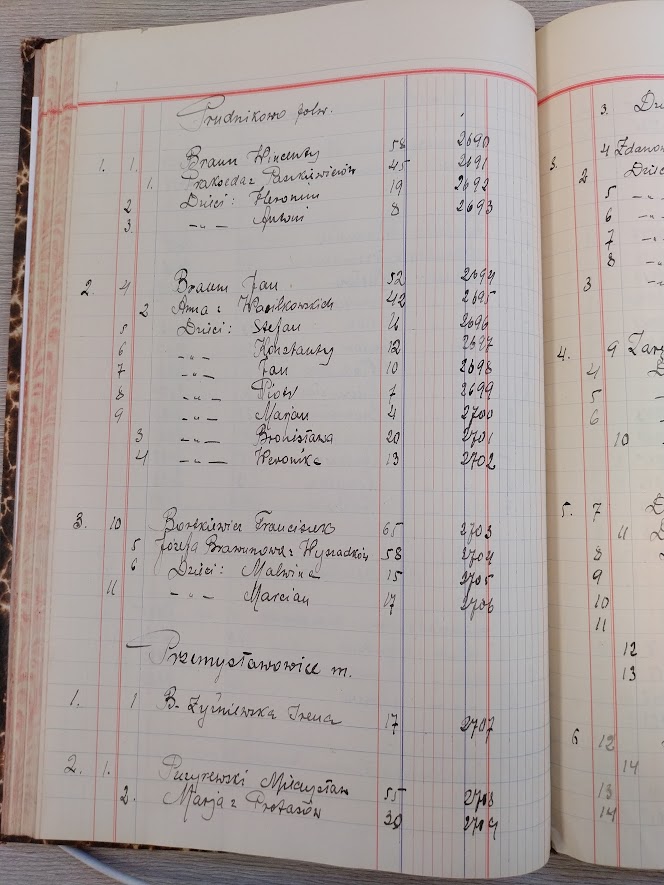 Prudnikowo folw.
1. 1. Braun Wincenty 58 2690
1. Prakseda z Paszkiewiczów 45 2691
2 Dzieci: Hieronim 19 2692
3. -„- Antoni 8 2693
2. 4 Braun Jan 52 2694
2 Anna z Wasilkowskich 42 2695
5 Dzieci: Stefan 2696
6 -„- Konstanty 12 2697
7 -„- Jan 10 2698
8 -„- Piotr 7 2699
9 -„- Marjan 4 2700
3 -„- Bronisława 20 2701
4 -„- Weronika 13 2702
3. 10 Franciszek 65 2703
5 Józefa 58 2704
6 Dzieci: Malwina 15 2705
11 -„- Marcian 17 2706
m.
1. 1 B. Irena 17 2707
2. 1. Mieczysław 55 2708
2. Marja z Protasów 30 2709
3.
3. 4
2 Dzieci
5 -„-
6 -„-
7 -„-
8 -„-
3
4. 9
4
5
6
10
5. 7
11
8
9
10
11
12
13
6 12
14
13
14